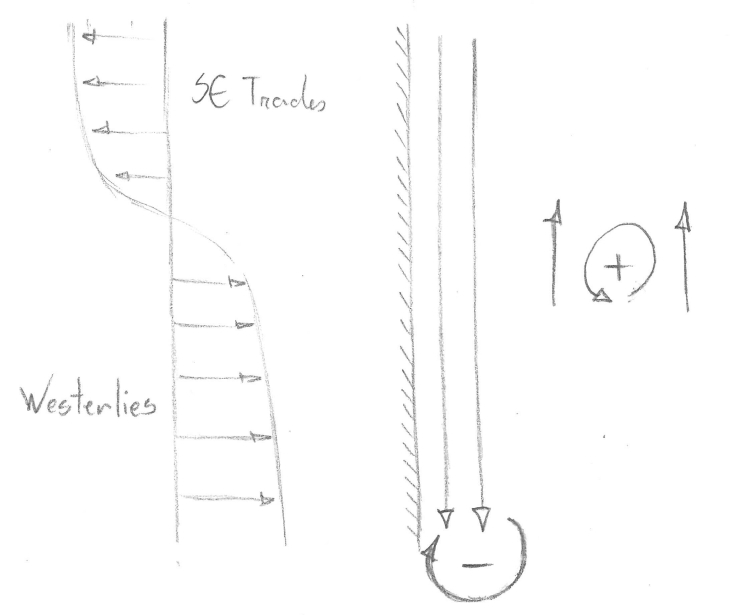 SE Trades
+
Westerlies
−